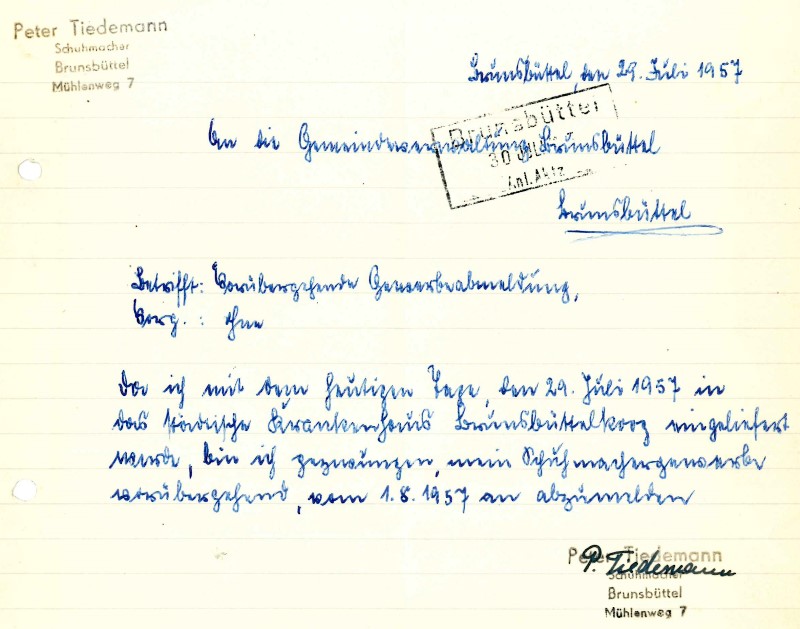 Peter Tiedemann
Schuhmacher
Brunsbüttel
Mühlenweg 7
Brunsbüttel, den 29. Juli 1957
An die Gemeindeverwaltung Brunsbüttel
Brunsbüttel
30 JULI
Anl. Aktz.
Brunsbüttel
Betrifft: Vorübergehende Gewerbeabmeldung.
Vorg. : ohne
Da ich mit dem heutigen Tage, den 29. Juli 1957 in
das städtische Krankenhaus Brunsbüttelkoog eingeliefert
werde, bin ich gezwungen, mein Schuhmachergewerbe
vorübergehend, vom 1.8.1957 an abzumelden
P. Tiedemann
Peter Tiedemann
Schuhmacher
Brunsbüttel
Mühlenweg 7